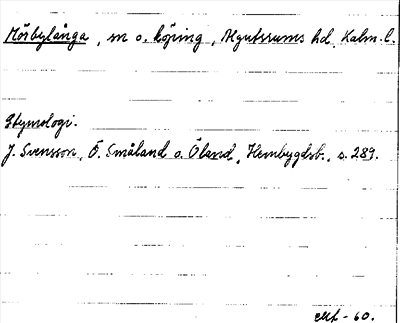 Mörbylånga, sn o. köping, Algutsrums hd, Kalm. l.
Etymologi.
J. Svensson, Ö. Småland o. Öland, Hembygdsb., s. 289.
-60.